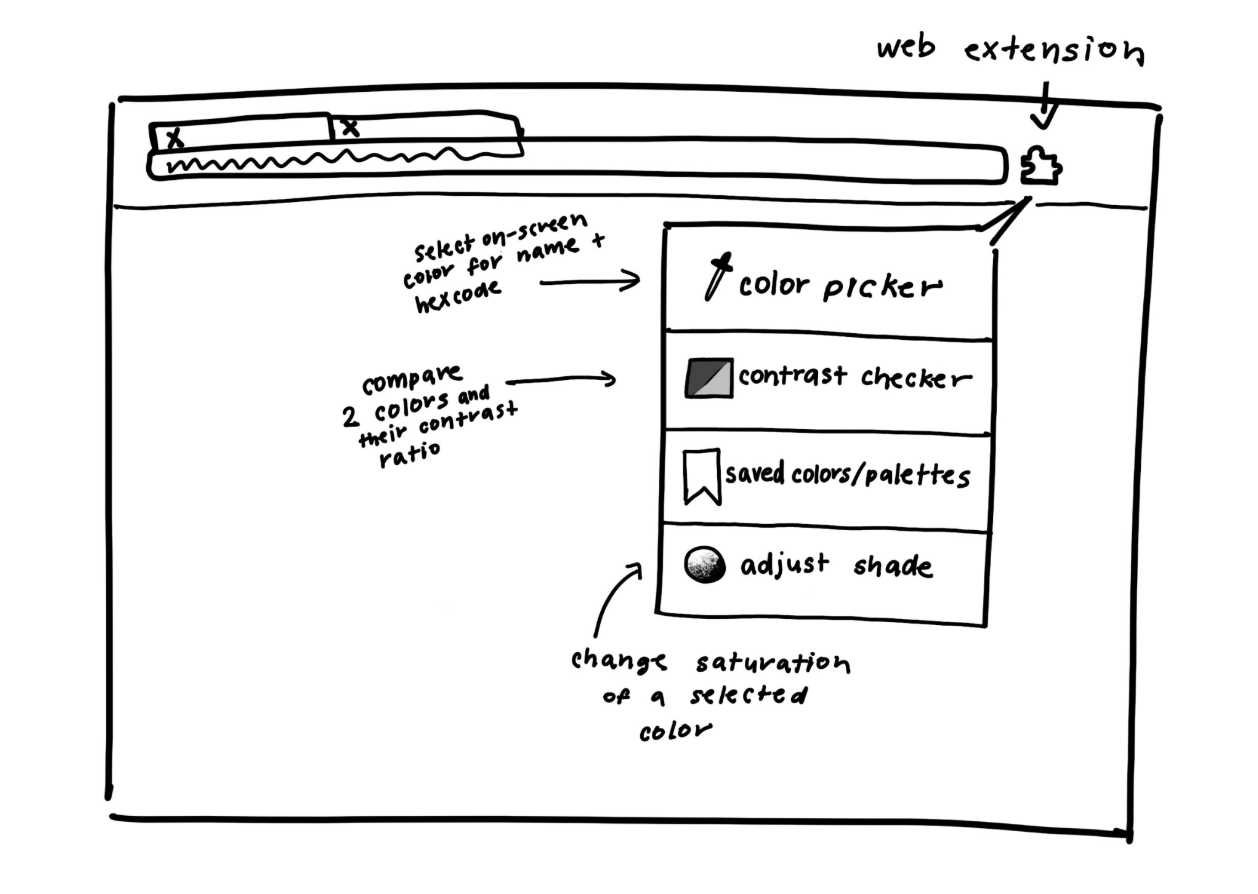 web extension
x
x
select on-screen
color for name +
hexcode
color picker
compare
2 colors and
their contrast
ratio
contrast checker
saved colors/palettes
adjust shade
change saturation
of a selected
color